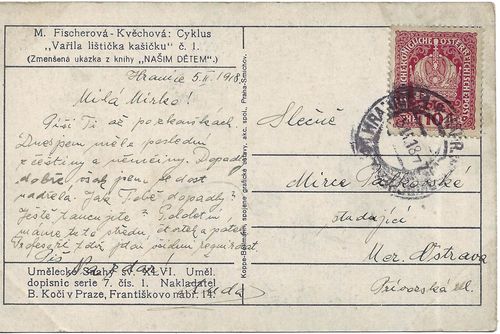 M. Fischerová-Kvěchová: Cyklus
„Vařila lištička kašičku" č. 1.
(Zmenšená ukázka z knihy „NAŠIM DĚTEM".)
Hranice 5.II. 1918
Milá Mirko!
Píši Ti až po zkouškách.
Dnes jsem měla poslední
z češtiny a němčiny. Dopadly
dobře, však jsem se dost
nadřela. Jak Tobě dopadly?
Ještě tancujete? Pololetní
máme tuto středu, čtvrtek a pátek.
Profesoři
Piš
Umělecké Snahy sv. XLVI. Uměl.
dopisnic serie 7. čís. 1. Nakladatel
B. Kočí v Praze, Františkovo nábř. 14.
Koppe-Bellmann, spojené grafické ústavy, akc. spol. Praha-Smíchov.
KAISERLICHE KÖNIGLICHE ÖSTERREICHISCHE POST
10
Slečně
Mirce
studující
Mor. Ostrava
Přívozská ul.